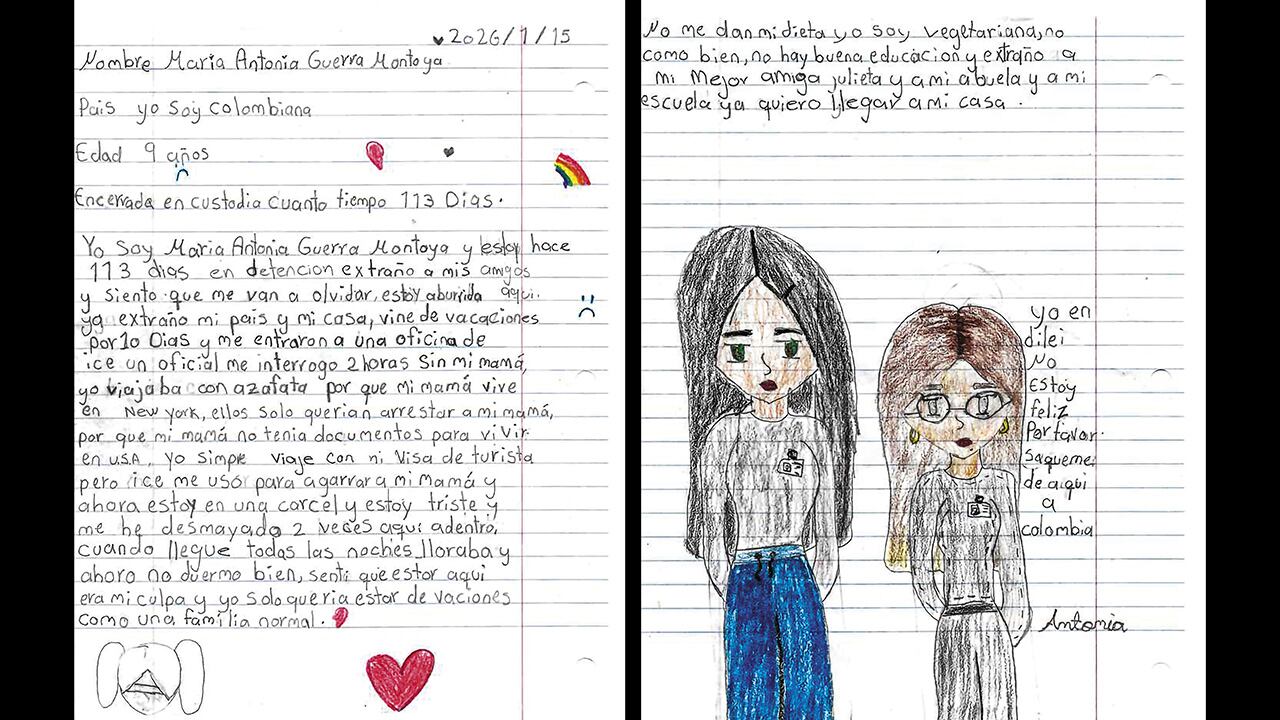 2026/1/15
Nombre Maria Antonia Guerra Montoya
Pais yo Soy colombiana
Edad 9 años
Encerrada en custodia cuanto tiempo 113 Dias.
Yo Soy Maria Antonia Guerra Montoya y estoy hace
113 dias en detencion extraño a mis amigos
y siento que me van a olvidar, estoy aburrida aqui.
ya extraño mi pais y mi casa, vine de vacaciones
por 10 Dias y me entraron a una oficina de
ice un oficial me interrogo 2 horas Sin mi mamá,
yo viajaba con azafata por que mi mamá vive
en New York, ellos solo querian arrestar a mi mamá,
por que mi mamá no tenia documentos para vivir
en U.S.A, yo simpre viaje con mi visa de turista
pero ice me usó para agarrar a mi Mamá y
ahora estoy en una carcel y estoy triste y
me he desmayado 2 veces aqui adentro,
cuando llegue todas las noches lloraba y
ahoro no duermo bien, senti que estar aqui
era mi culpa y yo solo queria estar de vaciones
como una familia normal.
No me dan mi dieta yo soy vegetariana, no
como bien, no hay buena educacion y extraño a
mi Mejor amiga julieta y a mi abuela y a mi
escuela ya quiero llegar a mi casa.
yo en
dilei
No
Estoy
feliz
Por favor
Saqueme
de aqui
a
colombia
Antonia